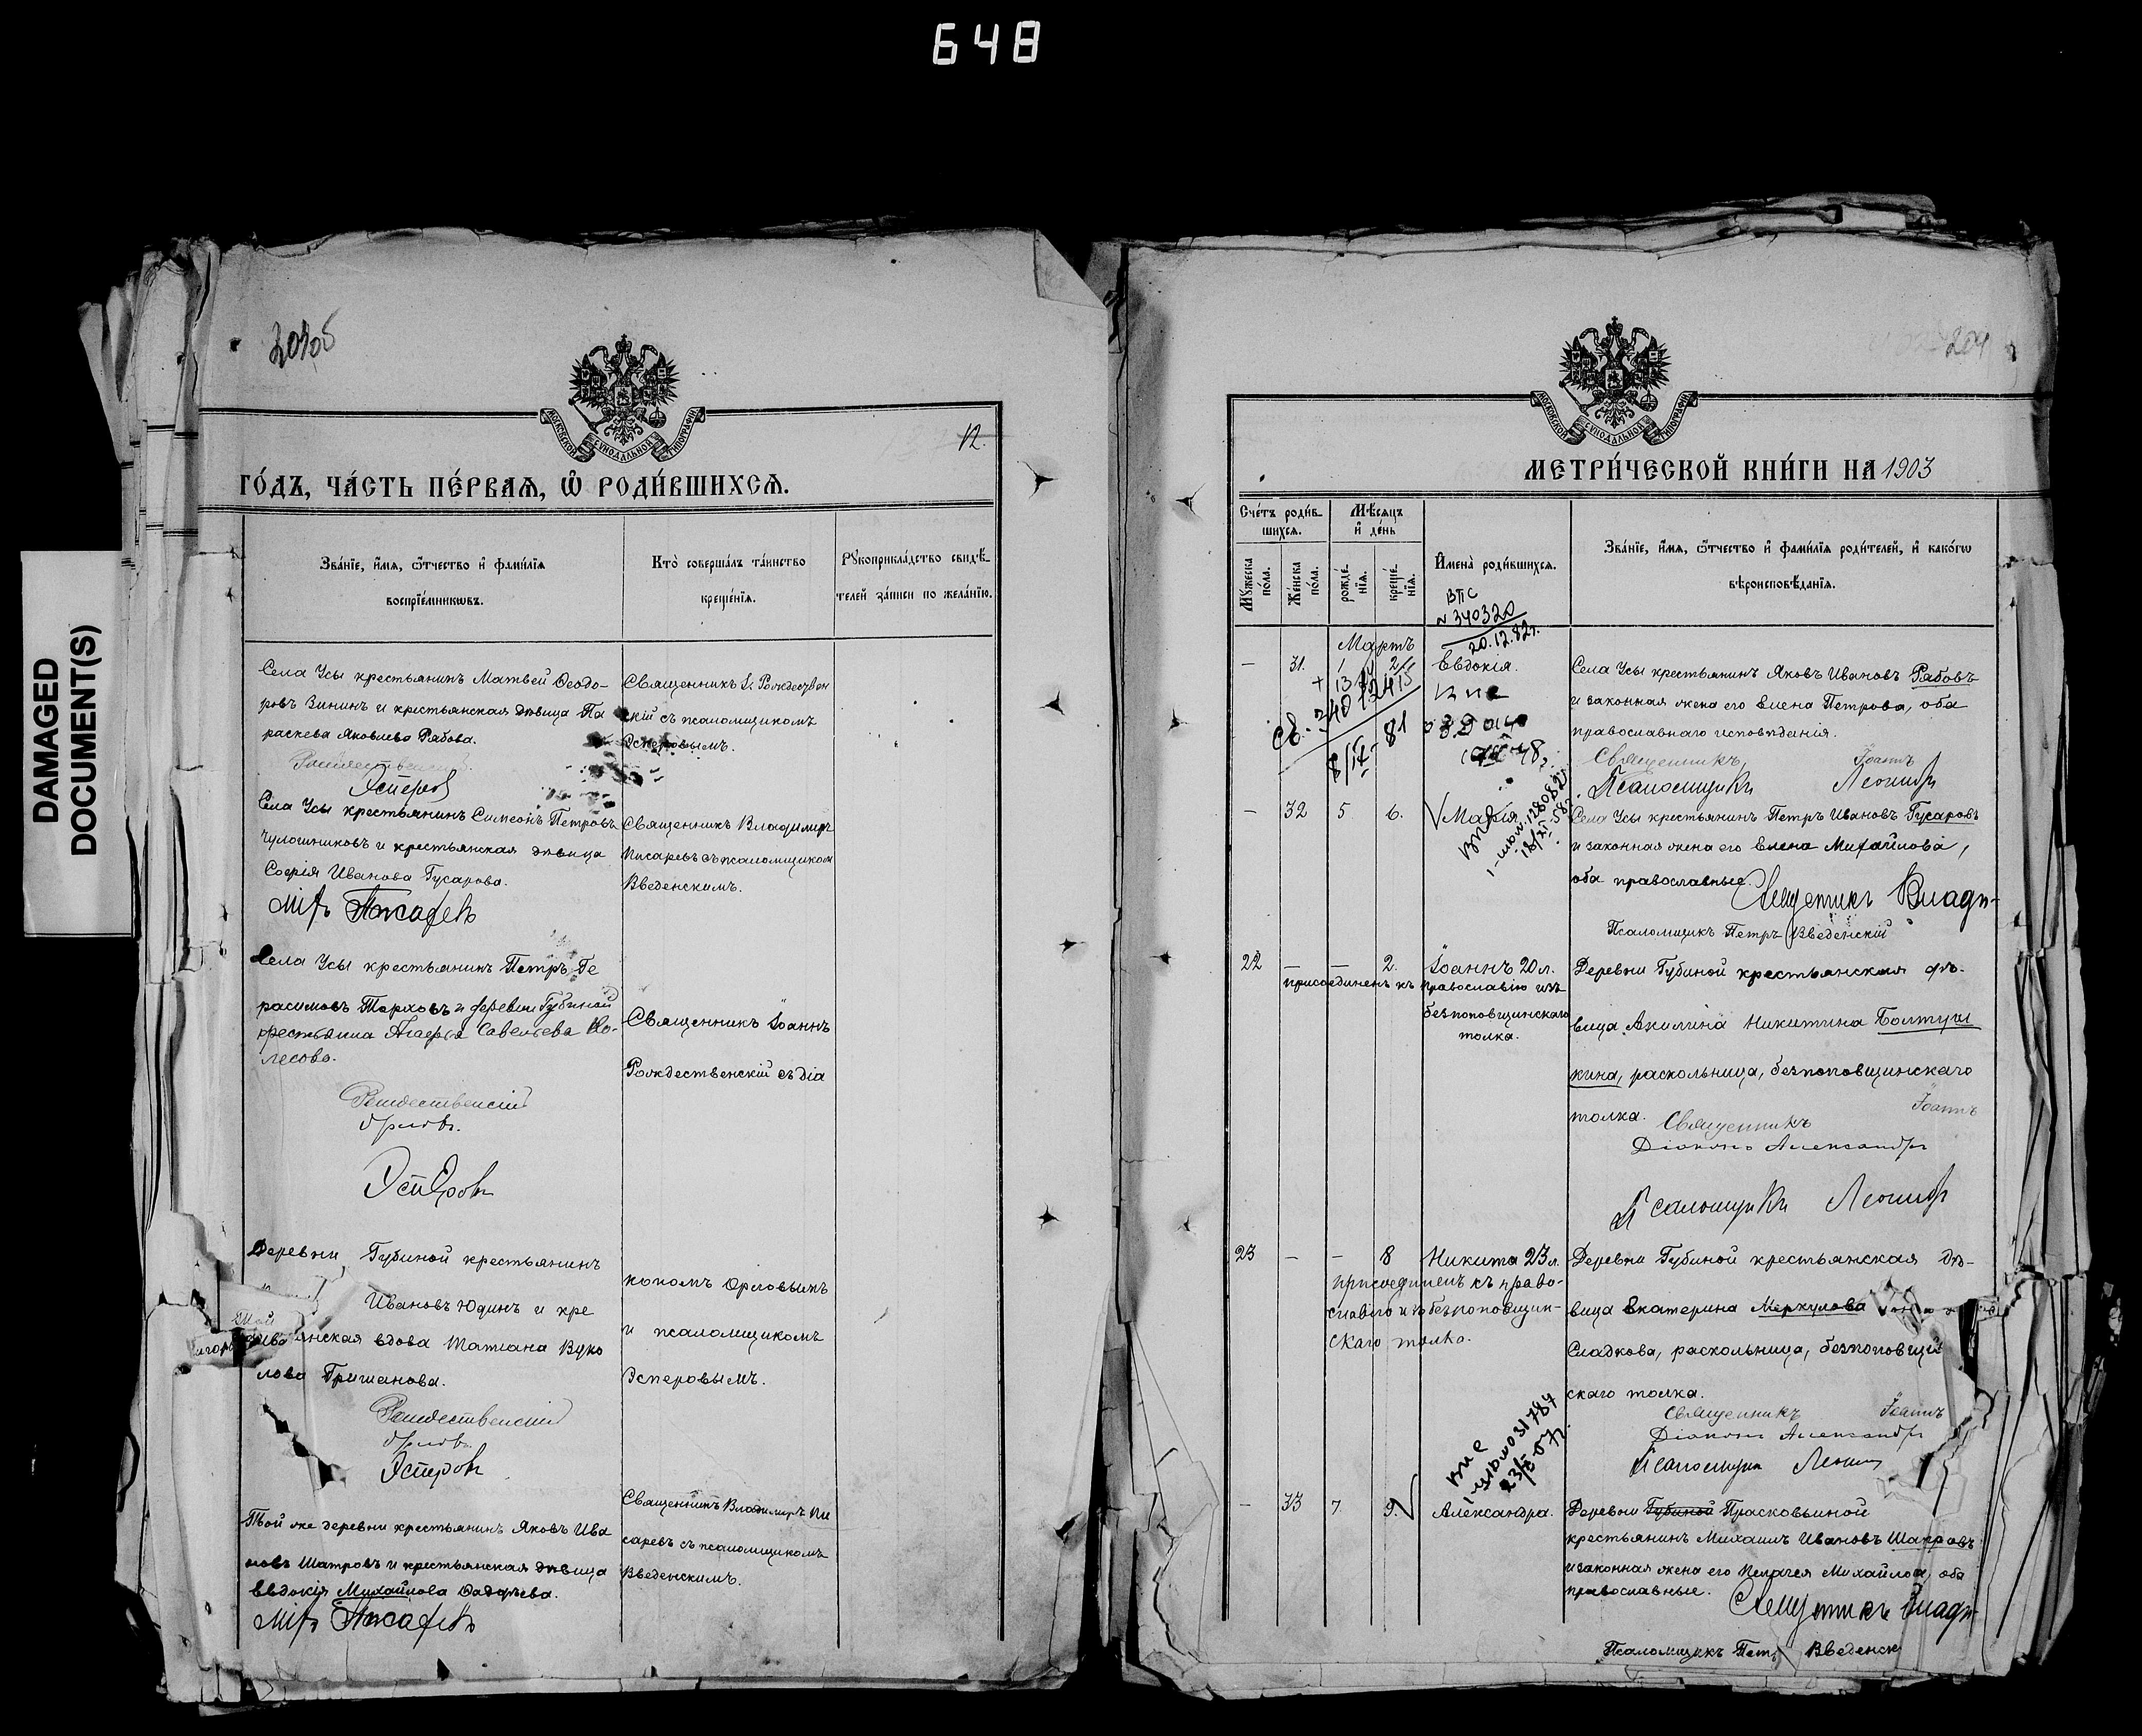 648
DAMAGED
DOCUMENT(S)
12.
МОСКОВСКОЙ СѴНОДАЛЬНОЙ ТИПОГРАФІИ
ГО́ДЪ, ЧА́СТЬ ПЕ́РВАѦ, Ѡ҆ РОДИ́ВШИХСѦ.
Зва́нїе, и҆́мѧ, ѻ҆́тчество и҆ фами́лїѧ
воспрїе́мникѡвъ.
Кто̀ соверша́лъ та́инство
креще́нїѧ.
Рꙋкоприкла́дство свидѣ́-
телей за́писи по жела́нїю.
Села Усы крестьянинъ Матвей Ѳеодо-
ровъ Зининъ и крестьянская дѣвица Па
раскева Яковлева Рябова.
Священникъ І. Рождествен
скій съ псаломщикомъ
Эсперовымъ.
Рождественскій
Эсперовъ
Села Усы крестьянинъ Симеонъ Петровъ
Чулошниковъ и крестьянская дѣвица
Софія Иванова Гусарова.
Священникъ Владимиръ
Писаревъ съ псаломщикомъ
Введенскимъ.
миръ Писаревъ
Села Усы крестьянинъ Петръ Ге
расимовъ Терховъ и деревни Губиной
крестьянка Агафья Савельева Ко-
лесова.
Священникъ Іоаннъ
Рождественскій съ діа
Рождественскій
Орловъ.
Эсперовъ
Деревни Губиной крестьянинъ
Ивановъ Юдинъ и кре
янская вдова Татіана Вуко
лова Гришанова.
кономъ Орловымъ
и псаломщикомъ
Эсперовымъ.
Рождественскій
Орловъ.
Эсперовъ
Той же деревни крестьянинъ Яковъ Ива
новъ Шатровъ и крестьянская дѣвица
Евдокія Михайлова Фадѣева.
Священникъ Владимиръ Пи
саревъ съ псаломщикомъ
Введенскимъ.
миръ Писаревъ
204
МОСКОВСКОЙ СѴНОДАЛЬНОЙ ТИПОГРАФІИ
МЕТРИ́ЧЕСКОЙ КНИ́ГИ НА 1903
Сче́тъ роди́в-
шихсѧ.
Мꙋ́жеска
по́ла.
Же́нска
по́ла.
Мѣ́сѧцъ
и҆ де́нь
рожде́-
нїѧ.
креще́-
нїѧ.
И҆мена̀ роди́вшихсѧ.
Зва́нїе, и҆́мѧ, ѻ҆́тчество и҆ фами́лїѧ роди́телей, и҆ како́гѡ
вѣроисповѣ́данїѧ.
ВПС
№ 340320
20.12.82г.
Мартъ
— 31. 1 2 Евдокія.
Села Усы крестьянинъ Яковъ Ивановъ Рябовъ
и законная жена его Елена Петрова, оба
православнаго исповѣданія.
Священникъ Іоаннъ
Псаломщикъ Леонидъ
— 32 5 6. Марія
18/XI-58
Села Усы крестьянинъ Петръ Ивановъ Гусаровъ
и законная жена его Елена Михайлова,
оба православные.
Священникъ Влади-
Псаломщикъ Петръ Введенскій
22 — — 2. Іоаннъ 20 л.
присоединенъ къ православію изъ
безпоповщинскаго
толка.
Деревни Губиной крестьянская дѣ-
вица Акилина Никитина Болтуш
кина, раскольница, безпоповщинскаго
толка.
Священникъ Іоаннъ
Діаконъ Александръ
Псаломщикъ Леонидъ
23 — — 8 Никита 23 л.
присоединенъ къ право-
славію изъ безпоповщин-
скаго толка.
Деревни Губиной крестьянская дѣ-
вица Екатерина Меркулова
Сладкова, раскольница, безпоповщин
скаго толка.
Священникъ Іоаннъ
Діаконъ Александръ
Псаломщикъ Леонид
— 33 7 9. Александра.
Деревни Губиной Прасковьиной
крестьянинъ Михаилъ Ивановъ Шатровъ
и законная жена его Пелагея Михайлова, оба
православные.
Священникъ Влади-
Псаломщикъ Петръ Введенск